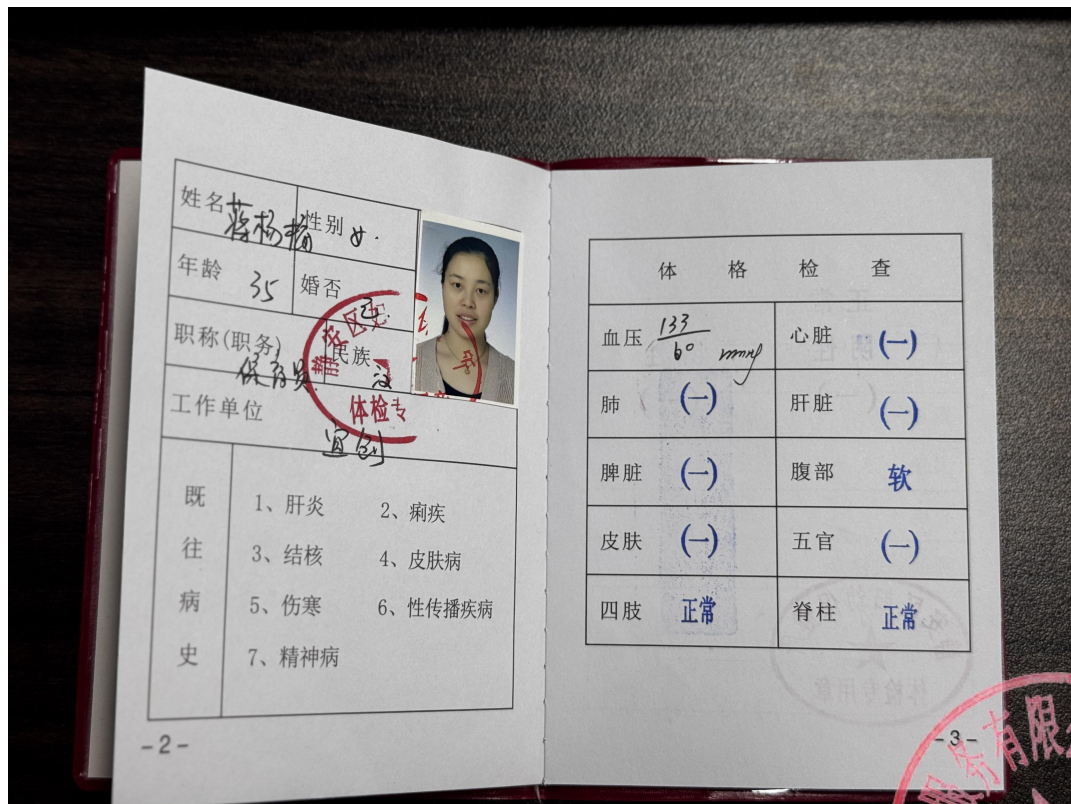 姓名 蒋杨楠 性别 女
年龄 35 婚否 已
职称(职务) 保育员 民族 汉
工作单位 宜创
静安区
体检专
既往病史
1、肝炎 2、痢疾
3、结核 4、皮肤病
5、伤寒 6、性传播疾病
7、精神病
-2-
体格检查
血压 133/60 mmHg 心脏 (一)
肺 (一) 肝脏 (一)
脾脏 (一) 腹部 软
皮肤 (一) 五官 (一)
四肢 正常 脊柱 正常
体检专用章
-3-
服务有限